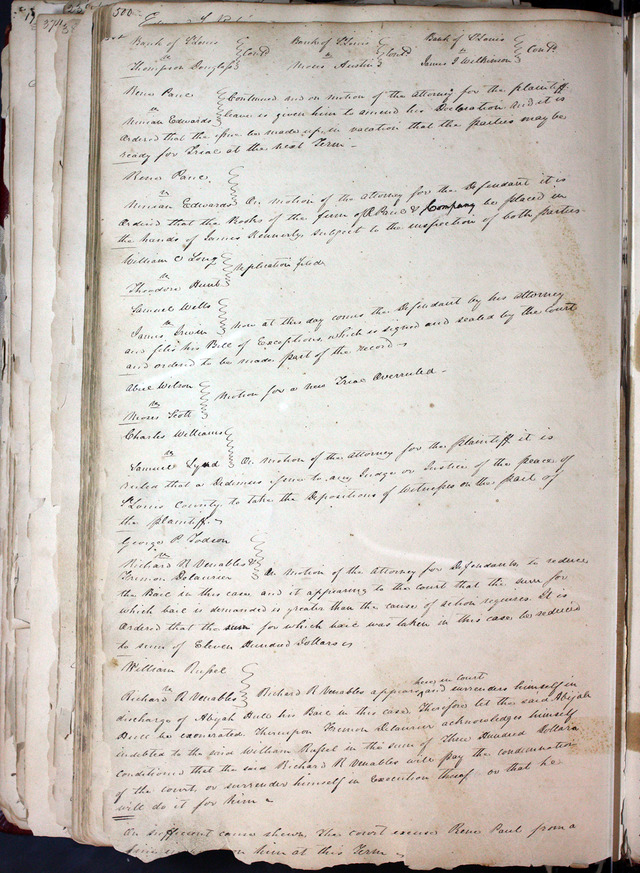 500
Bank of St Louis
vs Contd
Thompson Douglass
Bank of St Louis
vs Contd
Moses Austin
Bank of St Louis
vs Contd
James J Wilkinson
Rene Paul
vs
Ninian Edwards
Continued and on motion of the attorney for the plaintiff
leave is given him to amend his Declaration and it is
ordered that the issue be made up in vacation that the parties may be
ready for Trial at the next Term
Rene Paul
vs
Ninian Edwards On motion of the attorney for the Defendant it is
ordered that the Books of the firm of R Paul & Company be placed in
the hands of James Kennerly subject to the inspection of both parties
William C Long
vs Replication filed
Theodore Hunt
Samuel Wells
vs
James Irwin Now at this day comes the Defendant by his attorney
and files his Bill of Exceptions, which is signed and sealed by the Court
and ordered to be made part of the record
Abiel Wilson
vs Motion for a new Trial Overruled
Moses Scott
Charles Williams
vs
Samuel Lynd On motion of the attorney for the plaintiff it is
ruled that a Dedimus issue to any Judge or Justice of the peace of
St Louis County to take the Depositions of Witnesses on the part of
the plaintiff
George P Todson
vs
Richard R Venables &
Fremon Delaurier On motion of the attorney for Defendants, to reduce
the Bail in this case and it appearing to the court that the sum for
which bail is demanded is greater than the cause of action requires. It is
ordered that the sum for which bail was taken in this case be reduced
to sum of Eleven Hundred Dollars
William Russel
vs
Richard R Venables Richard R Venables appears here in court and surrenders himself in
discharge of Abijah Hull his Bail in this case Therefore let the said Abijah
Hull be exonerated. Thereupon Fremon Delaurier acknowledges himself
indebted to the said William Russel in the sum of Three Hundred Dollars
conditioned that the said Richard R Venables will pay the condemnation
of the court, or surrender himself in Execution thereof or that he
will do it for him
On sufficient cause shewn, the court excuse Rene Paul from a
him at this Term